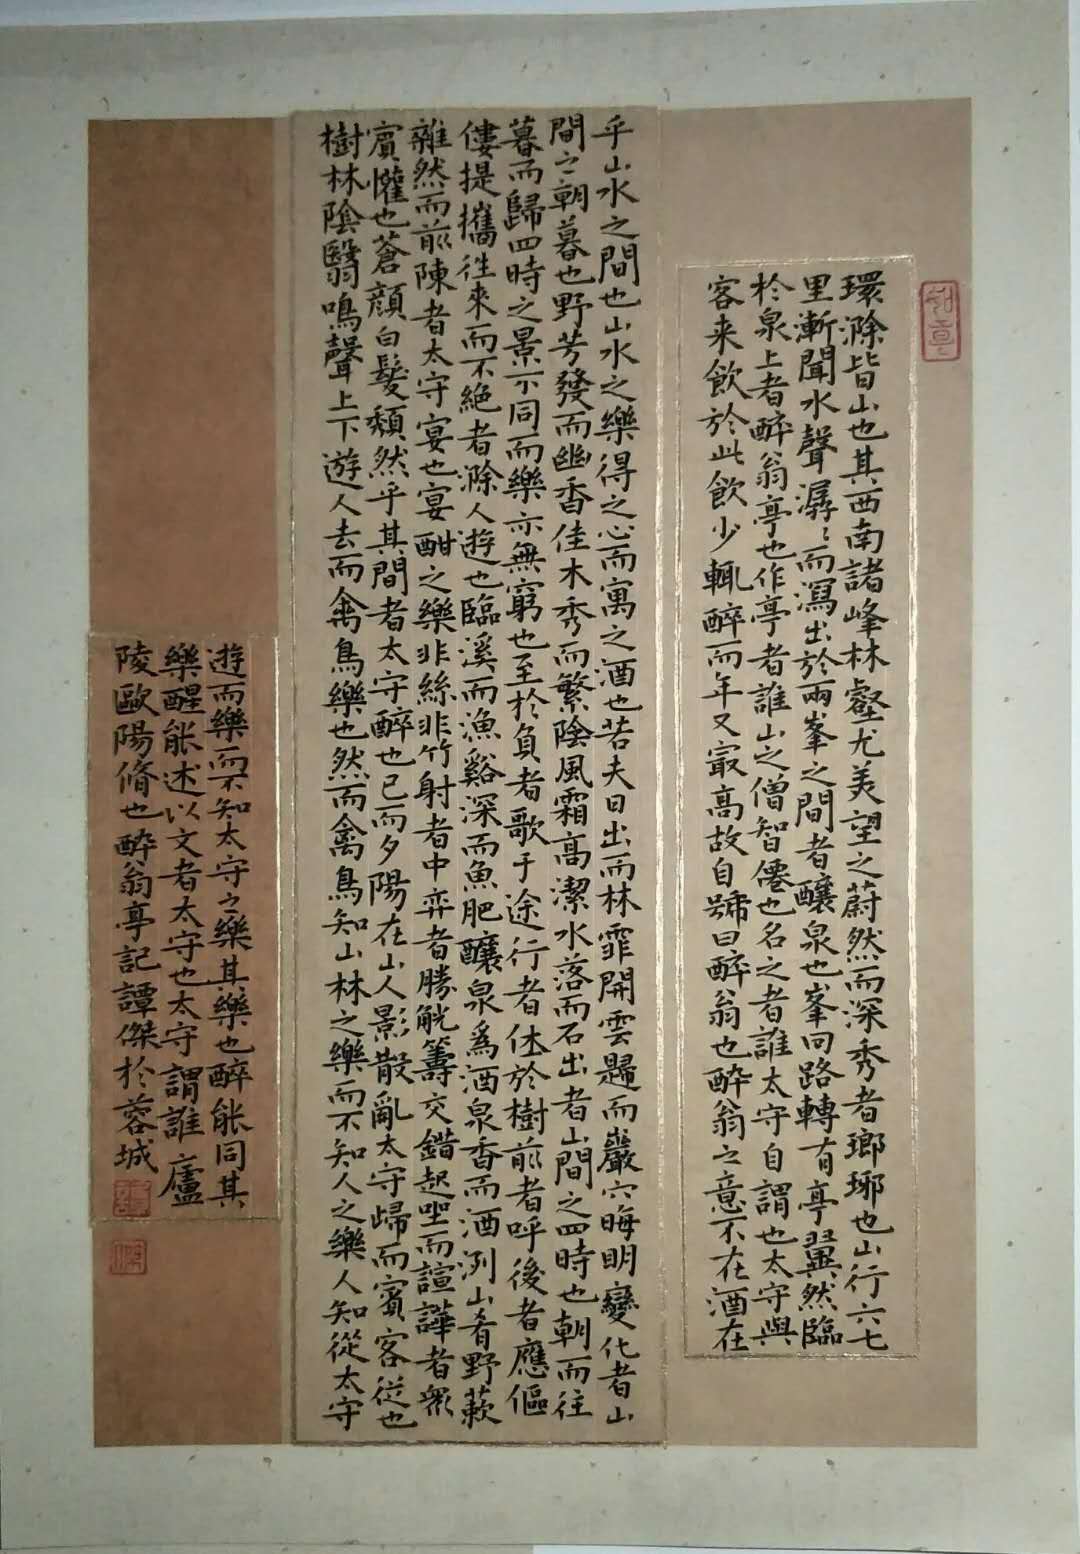 環滁皆山也其西南諸峰林壑尤美望之蔚然而深秀者瑯琊也山行六七
里漸聞水聲潺〻而瀉出於兩峯之間者釀泉也峯回路轉有亭翼然臨
於泉上者醉翁亭也作亭者誰山之僧智僊也名之者誰太守自謂也太守與
客来飲於此飲少輒醉而年又冣高故自號曰醉翁也醉翁之意不在酒在
乎山水之間也山水之樂得之心而寓之酒也若夫日出而林霏開雲歸而巖穴晦明變化者山
間之朝暮也野芳發而幽香佳木秀而繁陰風霜高潔水落而石出者山間之四時也朝而往
暮而歸四時之景不同而樂亦無窮也至於負者歌于途行者休於樹前者呼後者應傴
僂提攜往來而不絕者滁人遊也臨溪而漁谿深而魚肥釀泉爲酒泉香而酒洌山肴野蔌
雜然而前陳者太守宴也宴酣之樂非絲非竹射者中弈者勝觥籌交錯起坐而諠譁者衆
賓懽也蒼顏白髮頹然乎其間者太守醉也已而夕陽在山人影散亂太守歸而賓客從也
樹林陰翳鳴聲上下遊人去而禽鳥樂也然而禽鳥知山林之樂而不知人之樂人知從太守
遊而樂而不知太守之樂其樂也醉能同其
樂醒能述以文者太守也太守謂誰廬
陵歐陽脩也醉翁亭記譚傑於蓉城